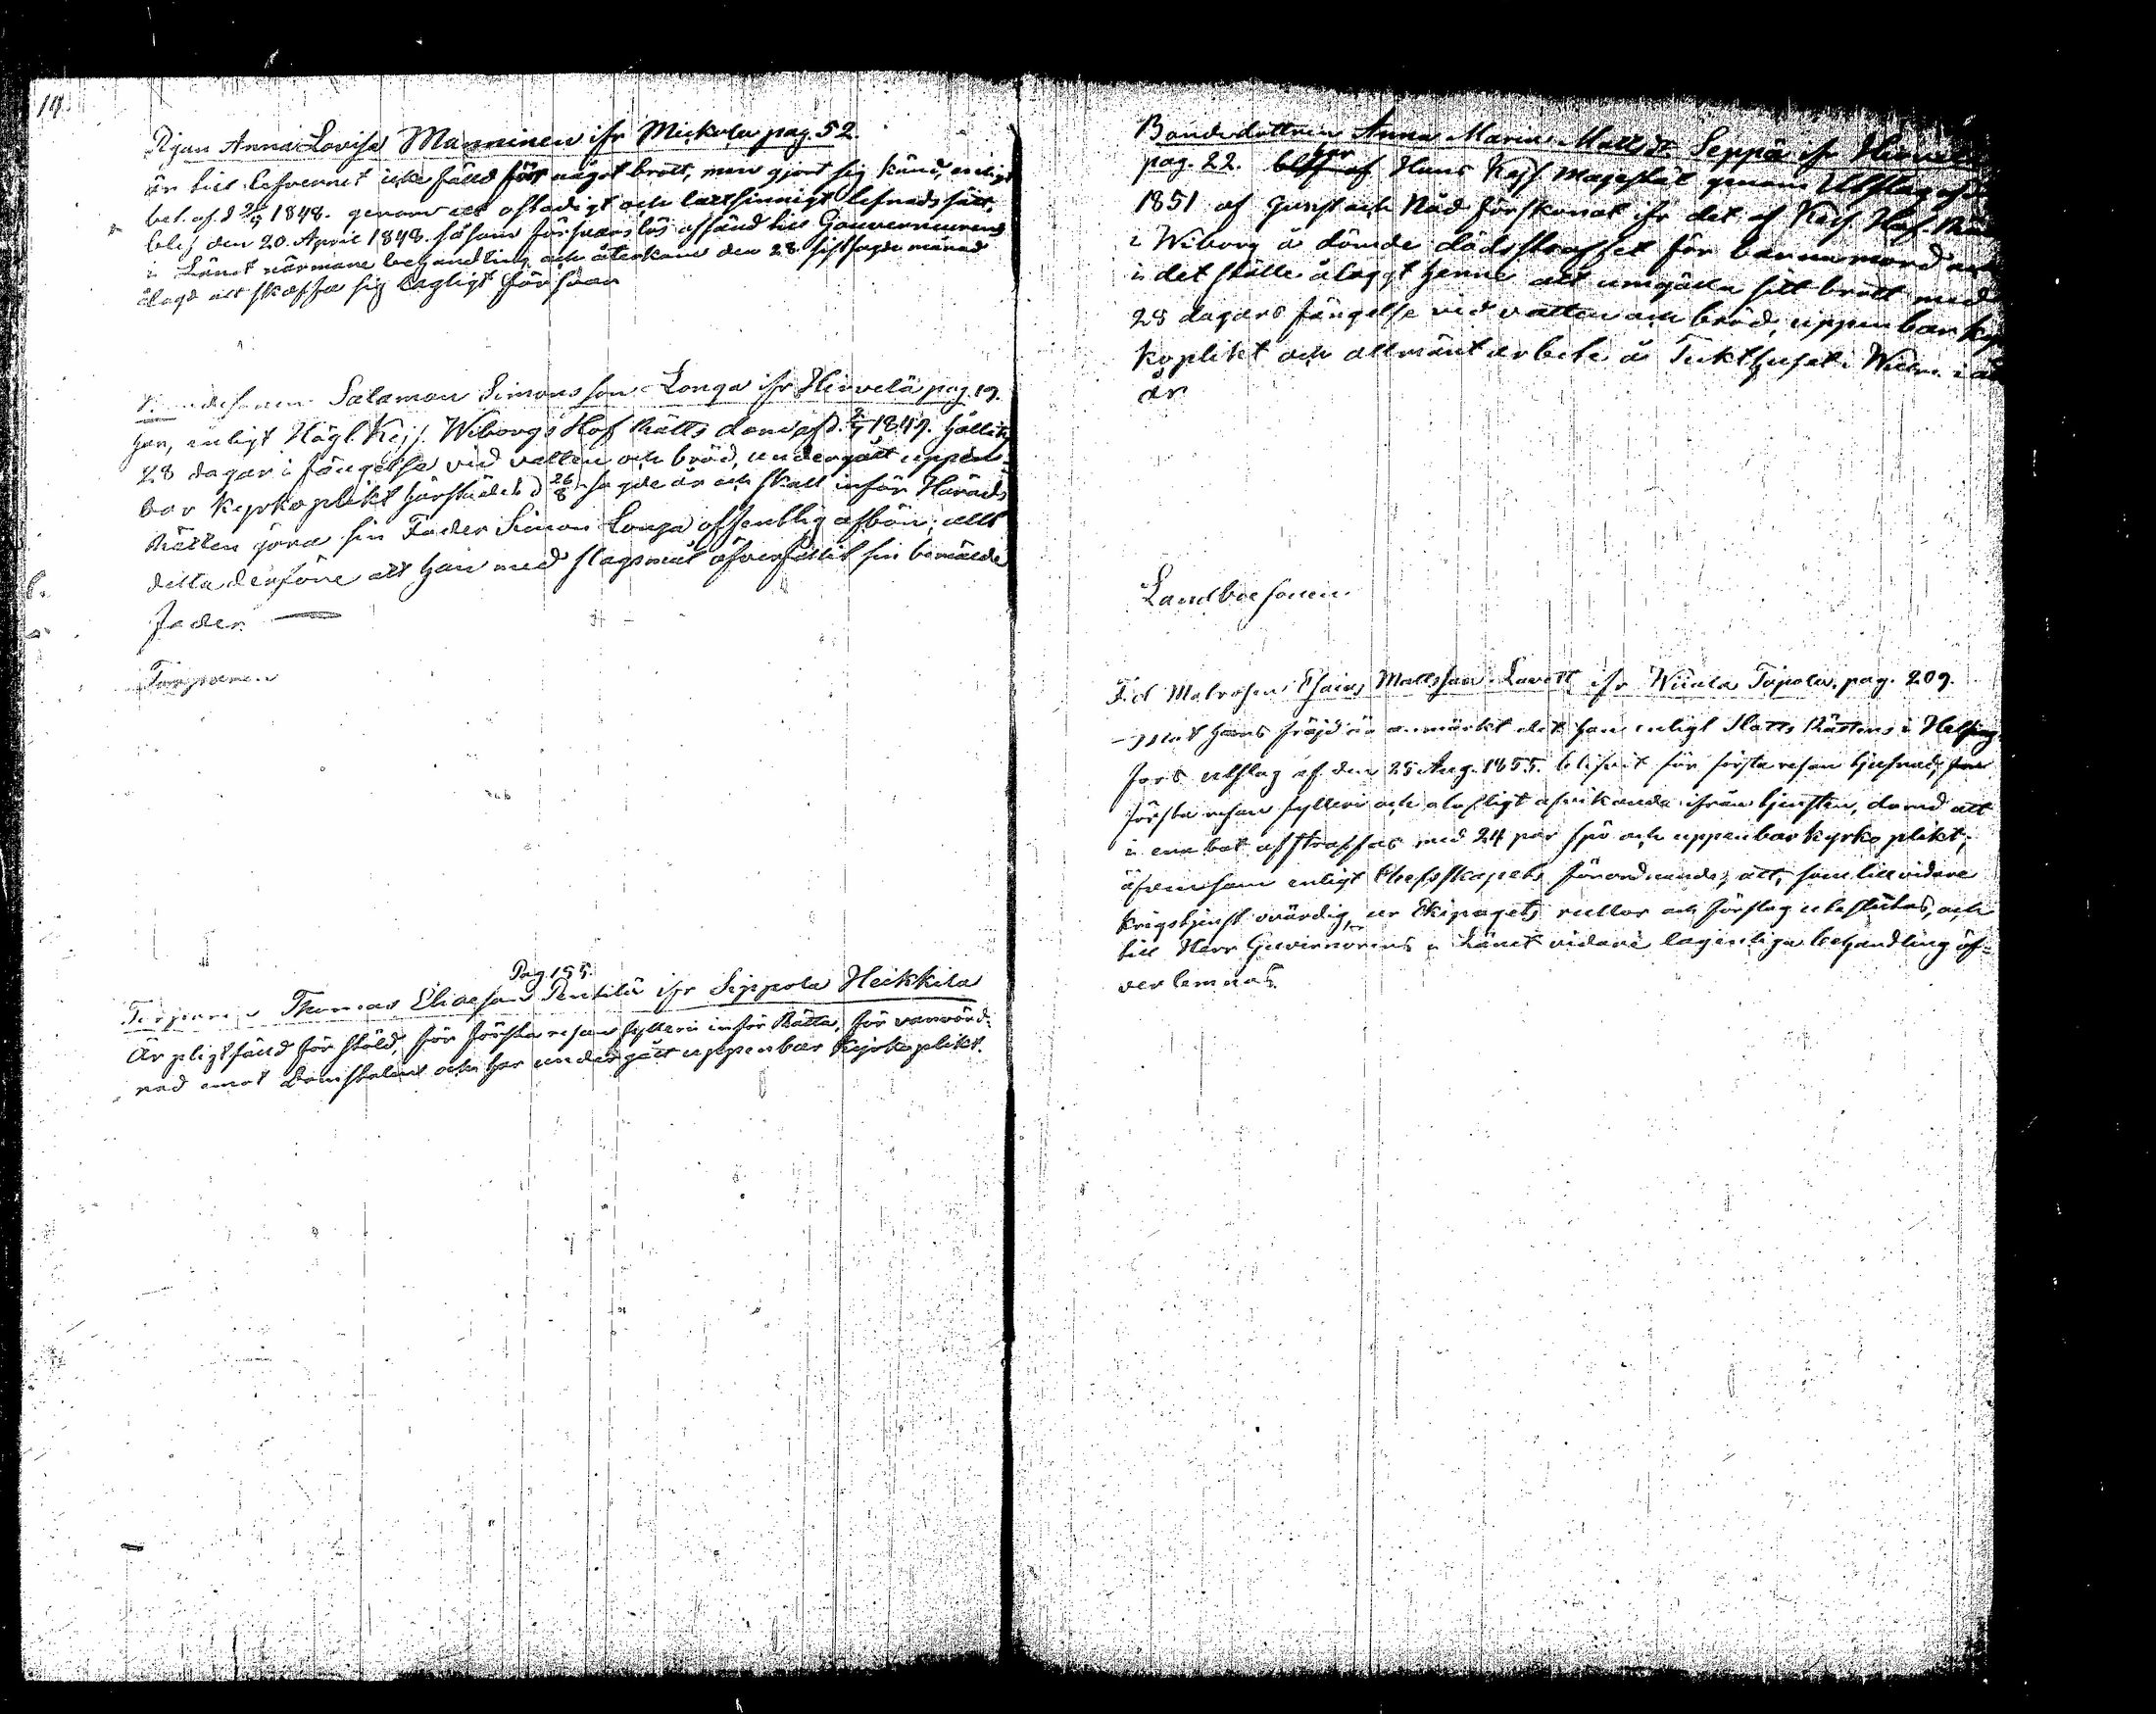 Pigan Anna Lovisa Manninen ifr Mickola pag. 52.
är till lefvernet icke fälld för något brott, men gjort sig känd, enligt
bet. af d 1848. genom ett ostadigt och lättsinnigt lefnadssätt,
blef den 20. April 1848. såsom försvarslös afsänd till Gouverneurens
i Länet närmare behandling och återkom den 28 sistsagde månad
ålagd att skaffa sig lagligt försvar
Salamon Simonsson Longa ifr Hirvelä pag. 19.
har, enligt Högl. Kejs. Wiborgs Hof Rätts dom af d. 1849. hållits
28 dagar i fängelse vid vatten och bröd, undergått uppen-
bar kyrkoplikt härstädes d 26/8 sagde år och skall inför Härads
Rätten göra sin Fader Simon Longa offentlig afbön; allt
detta derföre att han med slagsmål öfverfallit sin bemälde
fader. —
Torparen
Pag. 155.
Thomas Eliaeson Pentilä ifr Sippola Heikkila
Är pligtfälld för stöld, för första resan fylleri inför Rätta, för vanvörd-
nad emot Domstolen och har undergått uppenbar kyrkoplikt.
Bondedottren Anna Maria Matts dr Seppä ifr Hirvelä
pag. 22. har Hans Kejs. Majestät genom Utslag af
1851 af Gunst och Nåd förskonat ifr det af Kejs. Hof. Rätt
i Wiborg å dömde dödsstraffet för barnamord
i det ställe ålaggt henne att umgälla sitt brott med
28 dagars fängelse vid vatten och bröd, uppenbar kyr
koplikt och allmänt arbete å Tukthuset i
år
Landboesonen
F.d Matrosen Esaias Mattsson Lavett ifr Wiiala Topola, pag. 209.
— mot hans fräjd är anmärkt det han enligt Krigs Rättens i Helsing-
fors utslag af den 25 Aug. 1855. blifvit för första resan tjufnad,
första resan fylleri och olofligt afvikande ifrån tjensten, dömd att
i ena bot afstraffas med 24 par spö och uppenbar kyrko plikt;
äfvensom enligt Chefsskapets förordnande, att, som till vidare
krigstjenst ovärdig, ur Ekipagets rullor och förslag uteslutas, och
till Herr Guvernörens i Länet vidare lagenliga behandling öf-
verlemnas.